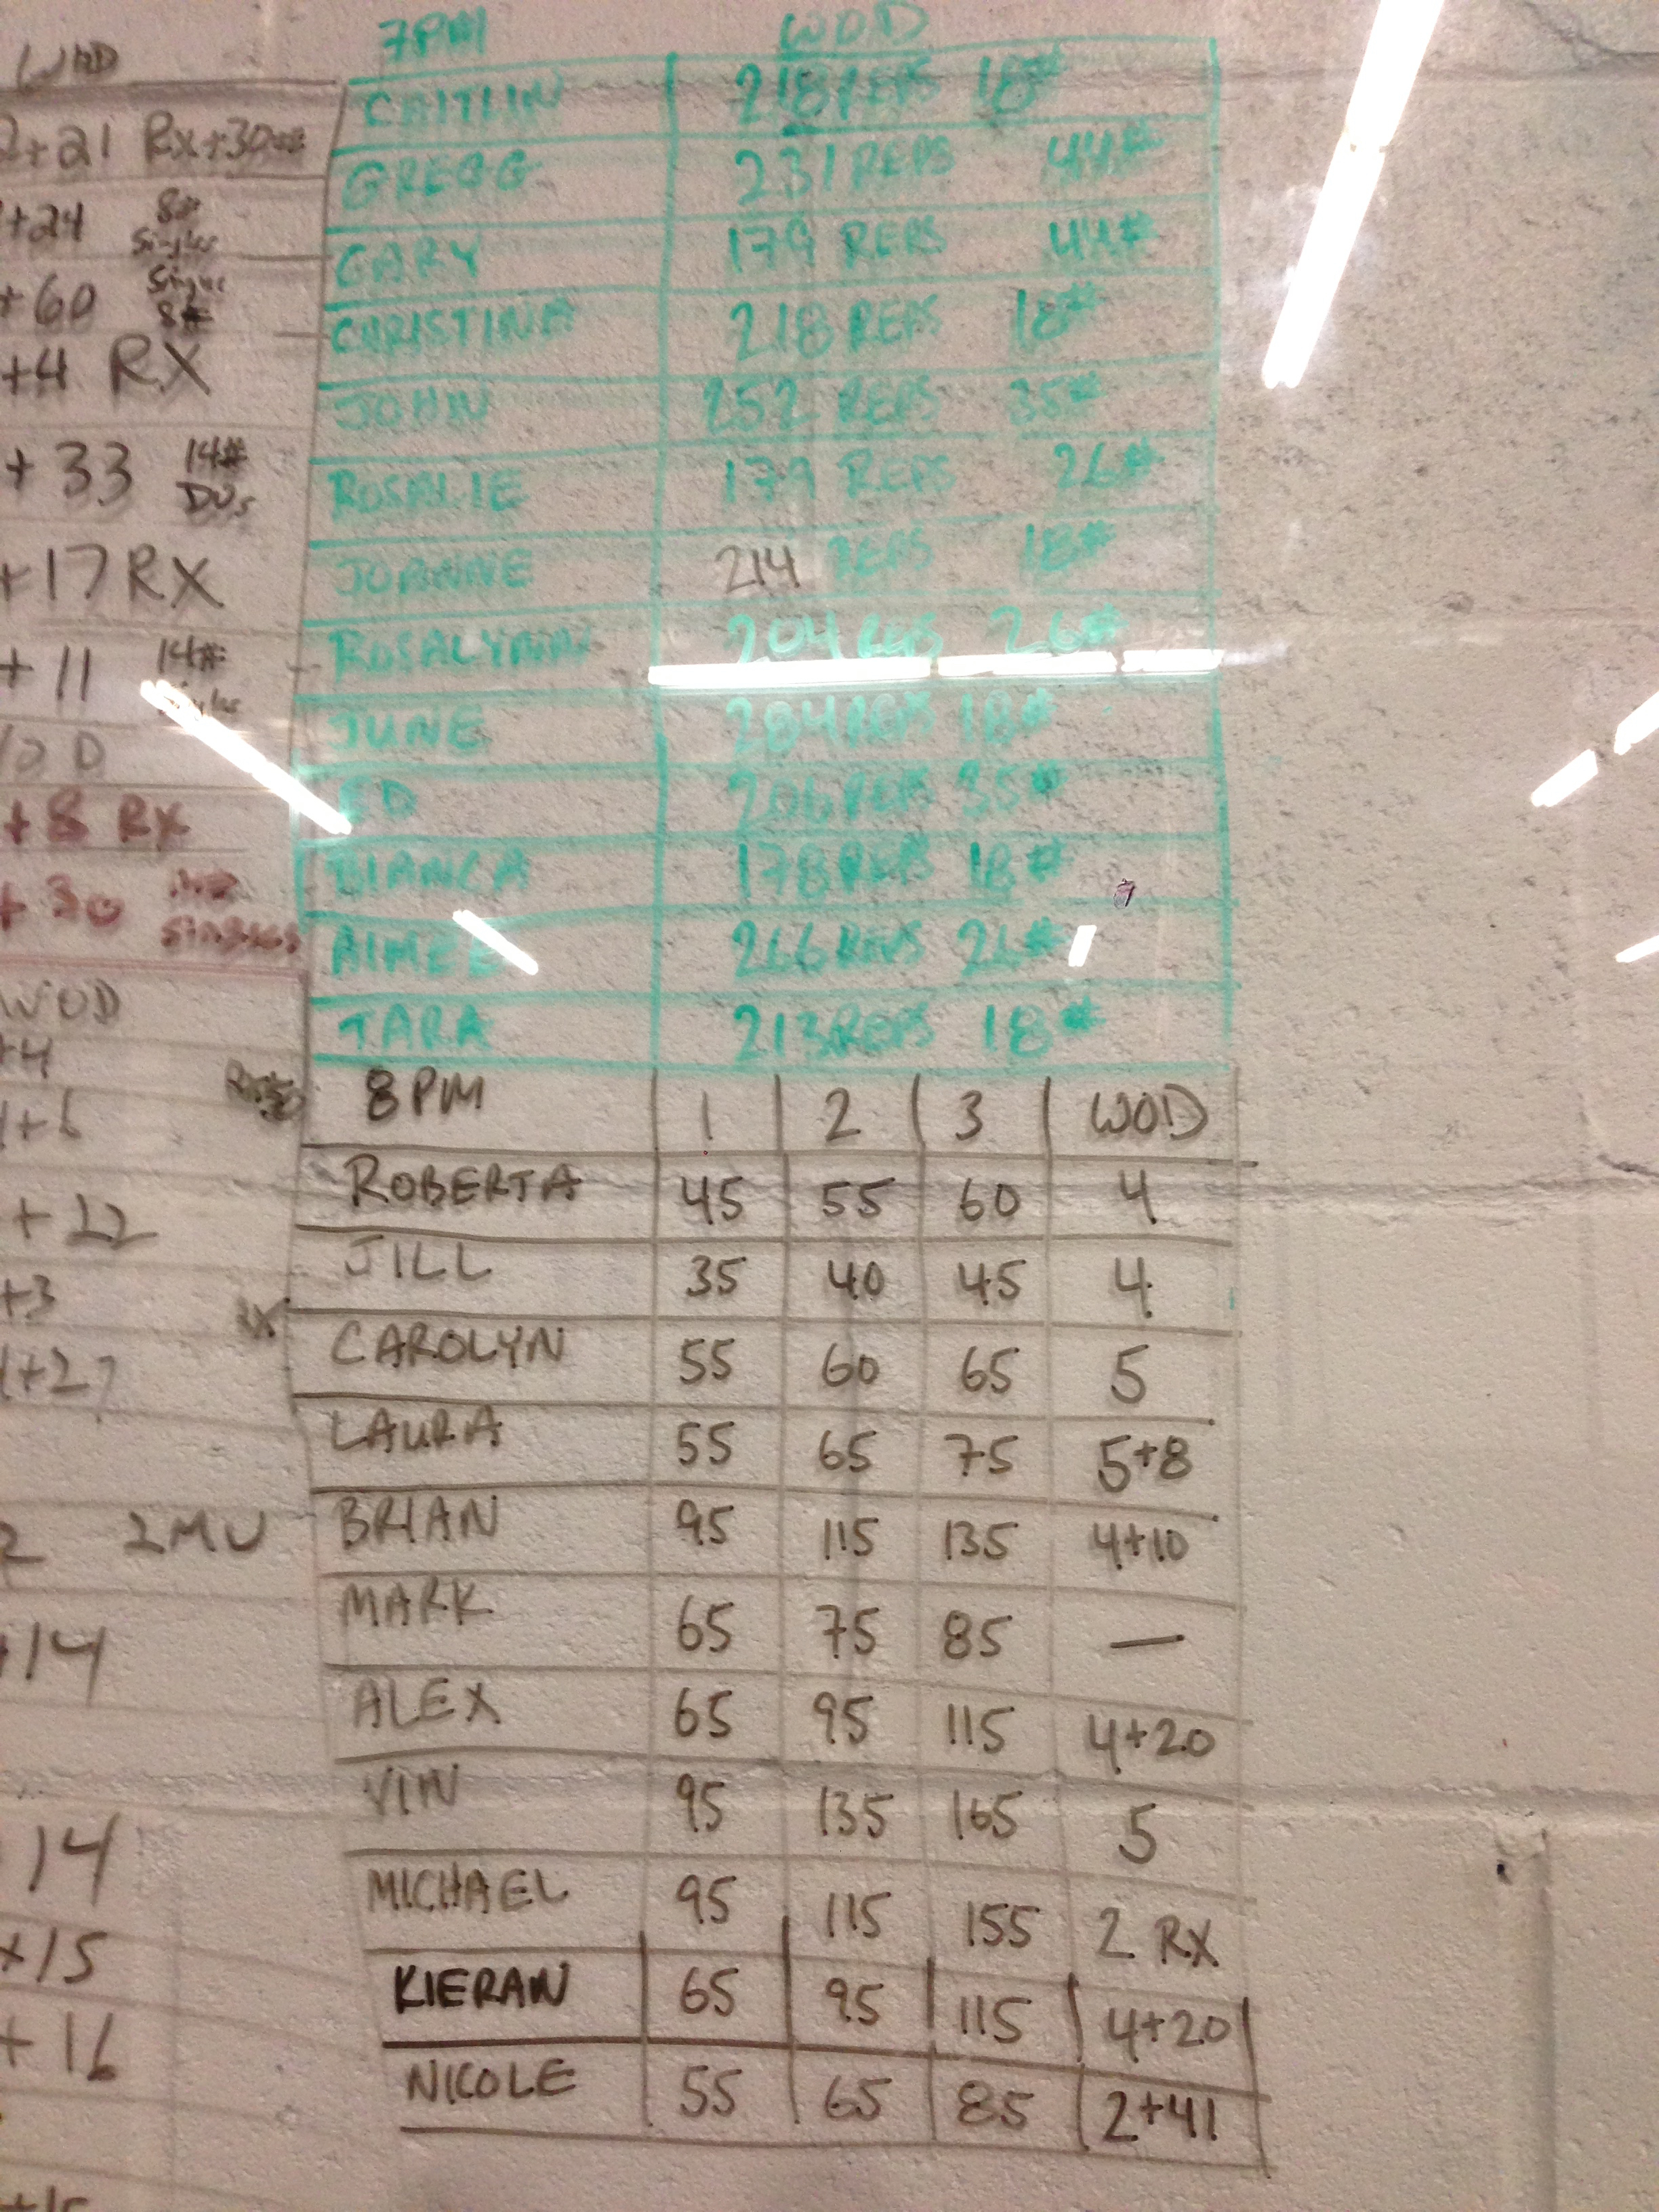 WOD
2+21 Rx+30#
+24 8# Singles
+60 Singles 8#
+4 RX
+33 14# DUs
+17 RX
+11 14#
+8 RX
+30 SINGLES
WOD
+4
+6
+22
+3 RX
+27
2 2MU
+14
14
+15
+16
+15
7PM WOD
CAITLIN 218 REPS 18#
GREGG 231 REPS 44#
GARY 179 REPS 44#
CHRISTINA 218 REPS 18#
JOHN 252 REPS 35#
ROSALIE 179 REPS 26#
JOANNE 214 REPS 18#
ROSALYNN 204 REPS 26#
JUNE 284 REPS 18#
ED 206 REPS 35#
BIANCA 178 REPS 18#
AIMEE 266 REPS 26#
TARA 213 REPS 18#
8PM 1 2 3 WOD
ROBERTA 45 55 60 4
JILL 35 40 45 4
CAROLYN 55 60 65 5
LAURA 55 65 75 5+8
BRIAN 95 115 135 4+10
MARK 65 75 85 —
ALEX 65 95 115 4+20
VIN 95 135 165 5
MICHAEL 95 115 155 2 RX
KIERAN 65 95 115 4+20
NICOLE 55 65 85 2+41